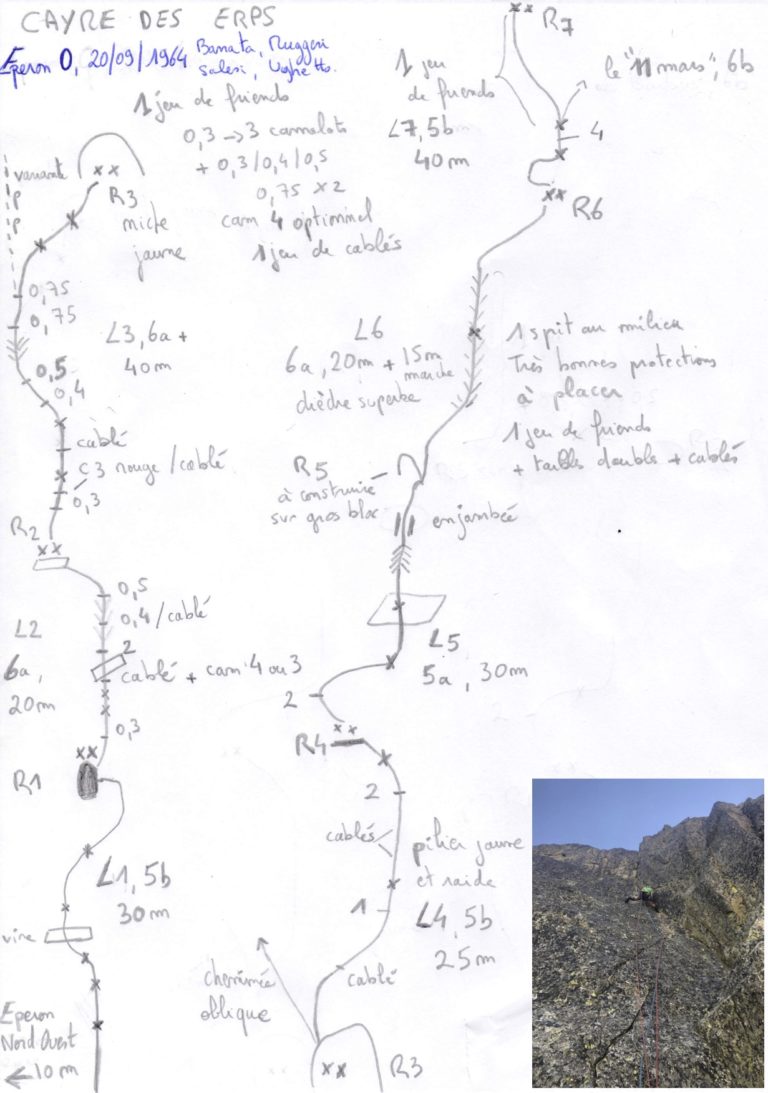 CAYRE DES ERPS
Eperon O, 20/09/1964 Barnata, Ruggeri
Salesi, Ughetto.
1 jeu de friends
0,3 → 3 camelots
+ 0,3/0,4/0,5
0,75 x2
cam 4 optionnel
1 jeu de cablés
variante
P
P
R3
niche
jaune
0,75
0,75
L3, 6a +
40m
0,5
0,4
cablé
C3 rouge / cablé
0,3
R2
0,5
0,4 / cablé
L2
6a,
20m
2
cablé + cam 4 ou 3
0,3
R1
L1, 5b
30m
vire
Eperon
Nord Ouest
← 10 m
R7
1 jeu
de friends
le "11 mars", 6b
L7, 5b
40m
4
R6
L6
6a, 20m + 15m
marche
dièdre superbe
1 spit au milieu
Très bonnes protections
à placer
1 jeu de friends
+ tailles doubles + cablés
R5
à construire
sur gros bloc
enjambée
L5
5a, 30m
2
R4
2
cablés
pilier jaune
et raide
L4, 5b
25m
1
cablé
cheminée
oblique
R3